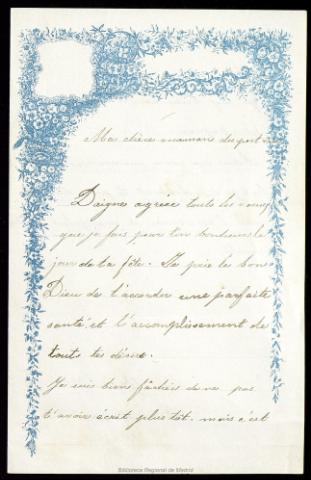 Ma chère maman du port
Daigne agréer touts les vœux
que je fais pour ton bonheur le
jour de ta fête. Je prie le bon
Dieu de t'accorder une parfaite
santé, et l'accomplissement de
touts tes désirs.
Je suis bien fâchée de ne pas
t'avoir écrit plus tôt, mais c'est
Biblioteca Regional de Madrid